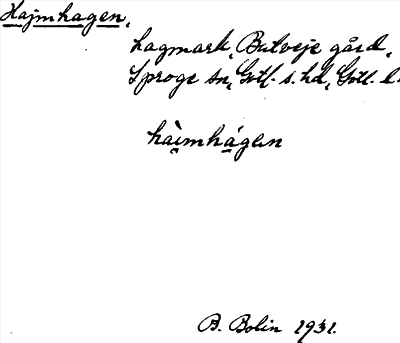 Hajmhagen,
hagmark, Butveje gård,
Sproge sn, Gotl. s. hd, Gotl. l.
hàimhágen
B. Bolin 1931.